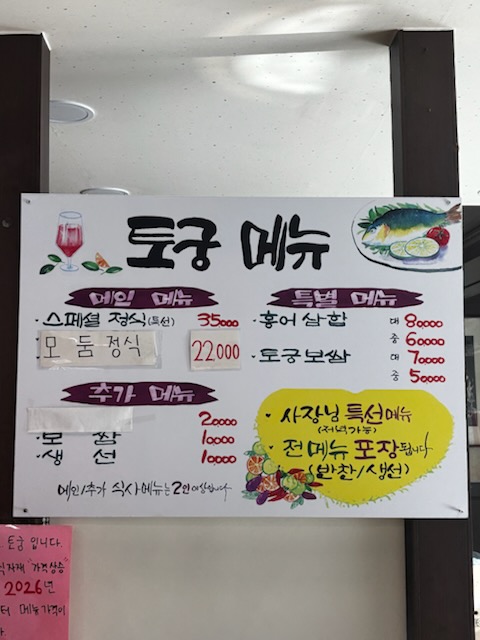 토궁 메뉴
메인 메뉴
·스페셜 정식(특선) 35000
모 둠정식 22000
추가 메뉴
20000
보 쌈 10000
·생 선 10000
메인/추가 식사메뉴는 2인 이상입니다
특별 메뉴
·홍어삼합 대 80000
중 60000
·토궁보쌈 대 70000
중 50000
· 사장님 특선메뉴
(저녁가능)
· 전 메뉴 포장됩니다
(반찬/생선)
토궁 입니다.
식자재 "가격상승
2026년
터 메뉴가격이